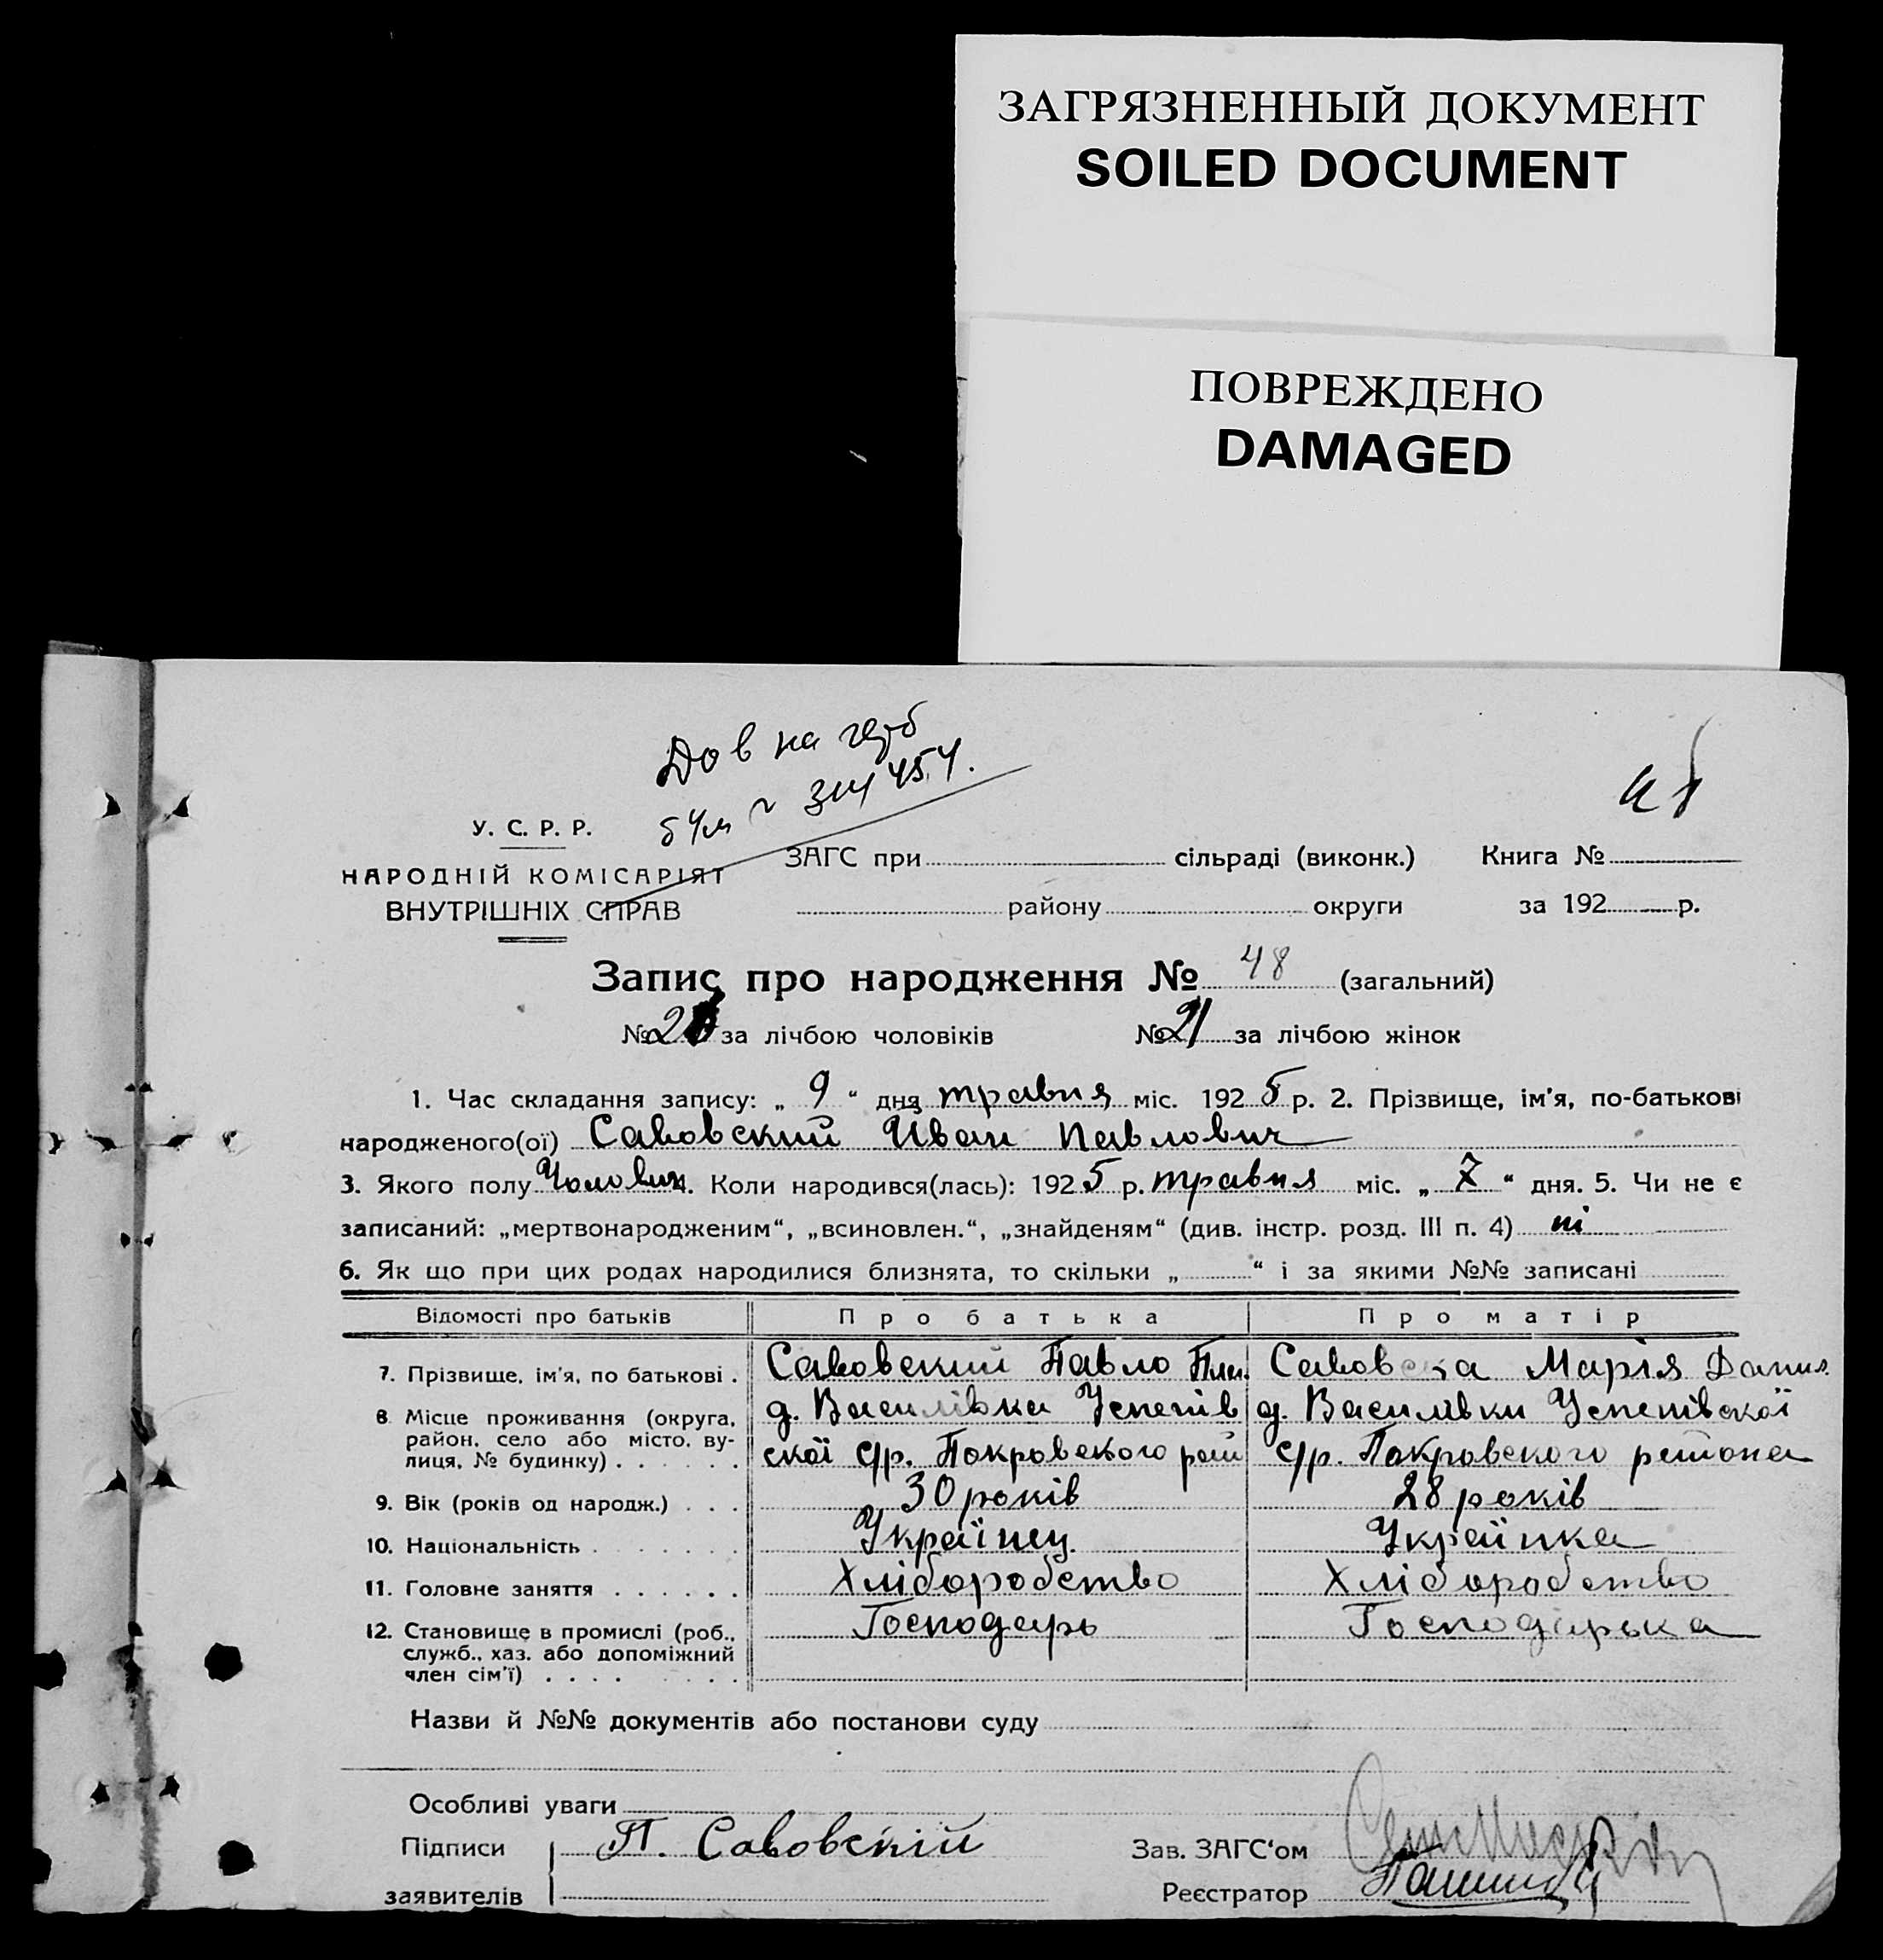 ЗАГРЯЗНЕННЫЙ ДОКУМЕНТ
SOILED DOCUMENT
ПОВРЕЖДЕНО
DAMAGED
Дов на
У. С. Р. Р.
НАРОДНІЙ КОМІСАРІЯТ
ВНУТРІШНІХ СПРАВ
ЗАГС при сільраді (виконк.) Книга №
району округи за 192 р.
Запис про народження № 48 (загальний)
№ за лічбою чоловіків № 21 за лічбою жінок
1. Час складання запису: „ 9 “ дня травня міс. 1925 р. 2. Прізвище, ім'я, по-батькові
народженого(ої) Савовский Иван Павлович
3. Якого полу Чолович. 4. Коли народився(лась): 1925 р. травня міс. „ 7 “ дня. 5. Чи не є
записаний: „мертвонародженим“, „всиновлен.“, „знайденям“ (див. інстр. розд. III п. 4) ні
6. Як що при цих родах народилися близнята, то скільки „ “ і за якими №№ записані
Відомості про батьків Про батька Про матір
7. Прізвище, ім'я, по батькові . Савовский Павло Савовска Марія Данил.
8 Місце проживання (округа, район, село або місто, вулиця, № будинку) . . . . . .
д. Василівка Успенів
ској с/р. Покровского рай
д. Василівки Успенівскої
с/р. Покровского района
9. Вік (років од народж.) . . . 30 років 28 років
10. Національність . . . . . . . Українец Українка
11. Головне заняття . . . . . . Хліборобство Хліборобство
12. Становище в промислі (роб., служб., хаз. або допоміжний член сім'ї) . . . . . . . Господарь Господарька
Назви й №№ документів або постанови суду
Особливі уваги
Підписи заявителів П. Савовскій
Зав. ЗАГС'ом
Реєстратор